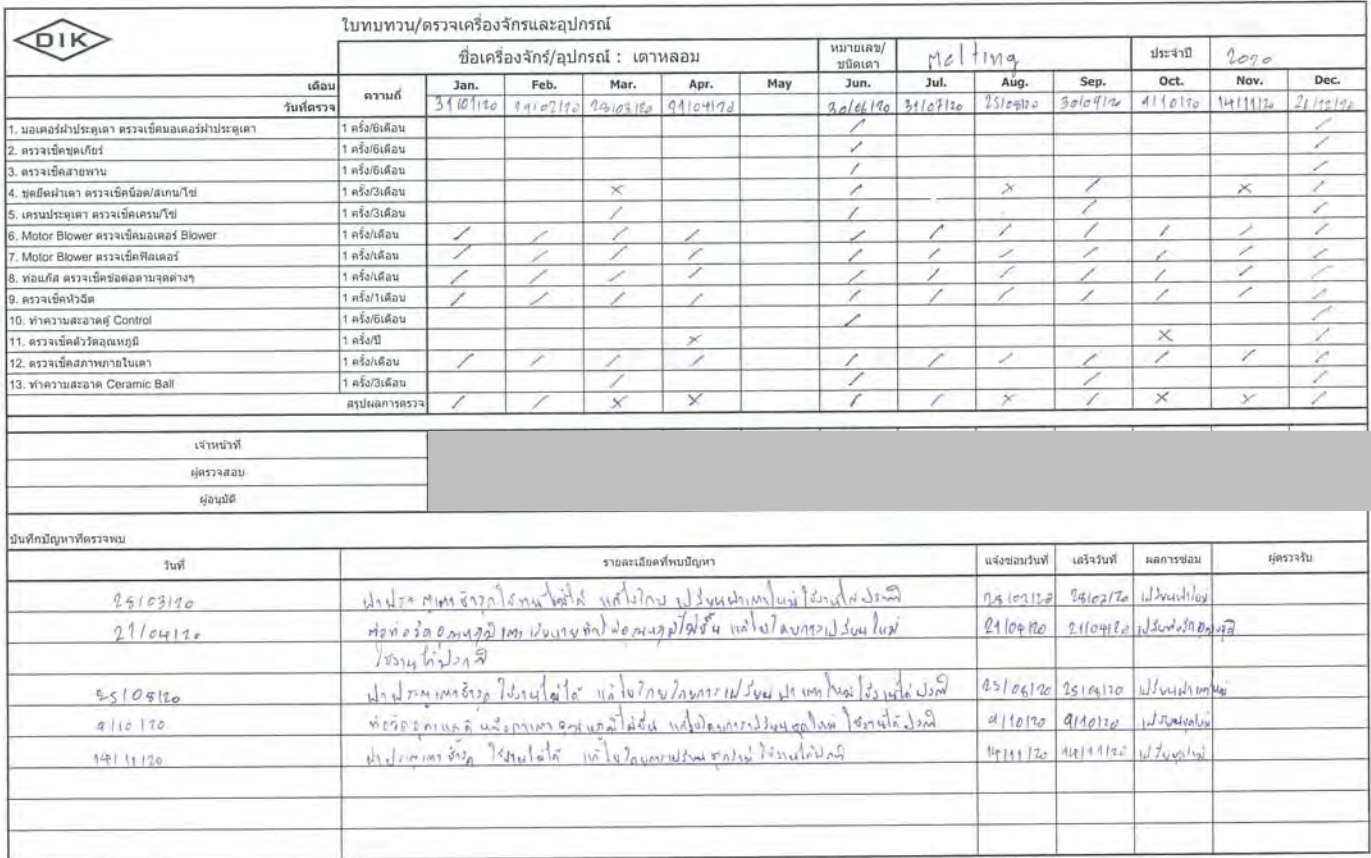 DIK
ใบทบทวน/ตรวจเครื่องจักรและอุปกรณ์
ชื่อเครื่องจักร์/อุปกรณ์ : เตาหลอม หมายเลข/ชนิดเตา Melting ประจำปี 2020
เดือน ความถี่ Jan. Feb. Mar. Apr. May Jun. Jul. Aug. Sep. Oct. Nov. Dec.
วันที่ตรวจ 31/01/20 30/06/20 31/07/20 25/08/20 30/09/20 9/10/20 14/11/20 26/12/20
1. มอเตอร์ฝาประตูเตา ตรวจเช็คมอเตอร์ฝาประตูเตา 1 ครั้ง/6เดือน / /
2. ตรวจเช็คชุดเกียร์ 1 ครั้ง/6เดือน / /
3. ตรวจเช็คสายพาน 1 ครั้ง/6เดือน / /
4. ชุดยึดฝาเตา ตรวจเช็คน็อต/สเกน/โซ่ 1 ครั้ง/3เดือน × / × / × /
5. เครนประตูเตา ตรวจเช็คเครน/โซ่ 1 ครั้ง/3เดือน / / / /
6. Motor Blower ตรวจเช็คมอเตอร์ Blower 1 ครั้ง/เดือน / / / / / / / / / / /
7. Motor Blower ตรวจเช็คฟิลเตอร์ 1 ครั้ง/เดือน / / / / / / / / / / /
8. ท่อแก๊ส ตรวจเช็คข้อต่อตามจุดต่างๆ 1 ครั้ง/เดือน / / / / / / / / / / /
9. ตรวจเช็คหัวฉีด 1 ครั้ง/1เดือน / / / / / / / / / / /
10. ทำความสะอาดตู้ Control 1 ครั้ง/6เดือน / /
11. ตรวจเช็คตัววัดอุณหภูมิ 1 ครั้ง/ปี × × /
12. ตรวจเช็คสภาพภายในเตา 1 ครั้ง/เดือน / / / / / / / / / / /
13. ทำความสะอาด Ceramic Ball 1 ครั้ง/3เดือน / / / /
สรุปผลการตรวจ / / × × / / × / × × /
เจ้าหน้าที่
ผู้ตรวจสอบ
ผู้อนุมัติ
บันทึกปัญหาที่ตรวจพบ
วันที่ รายละเอียดที่พบปัญหา แจ้งซ่อมวันที่ เสร็จวันที่ ผลการซ่อม ผู้ตรวจรับ
ฝาประตูเตาชำรุดใช้งานไม่ได้ แก้ไขโดย เปลี่ยนฝาเตาใหม่ใช้งานได้ปรกติ
21/04/20 แก้ไขโดยการเปลี่ยนใหม่ 21/04/20 21/04/20
ใช้งานได้ปรกติ
25/08/20 ฝาประตูเตาชำรุด ใช้งานไม่ได้ แก้ไขโดยการเปลี่ยน ฝาเตาใหม่ ใช้งานได้ปรกติ 25/08/20 25/08/20 เปลี่ยนฝาเตาใหม่
9/10/20 แก้ไขโดยการเปลี่ยนชุดใหม่ ใช้งานได้ปรกติ 9/10/20 9/10/20 เปลี่ยนชุดใหม่
14/11/20 ฝาประตูเตาชำรุด ใช้งานไม่ได้ แก้ไขโดยการเปลี่ยน ชุดใหม่ ใช้งานได้ปรกติ 14/11/20 14/11/20 เปลี่ยนชุดใหม่